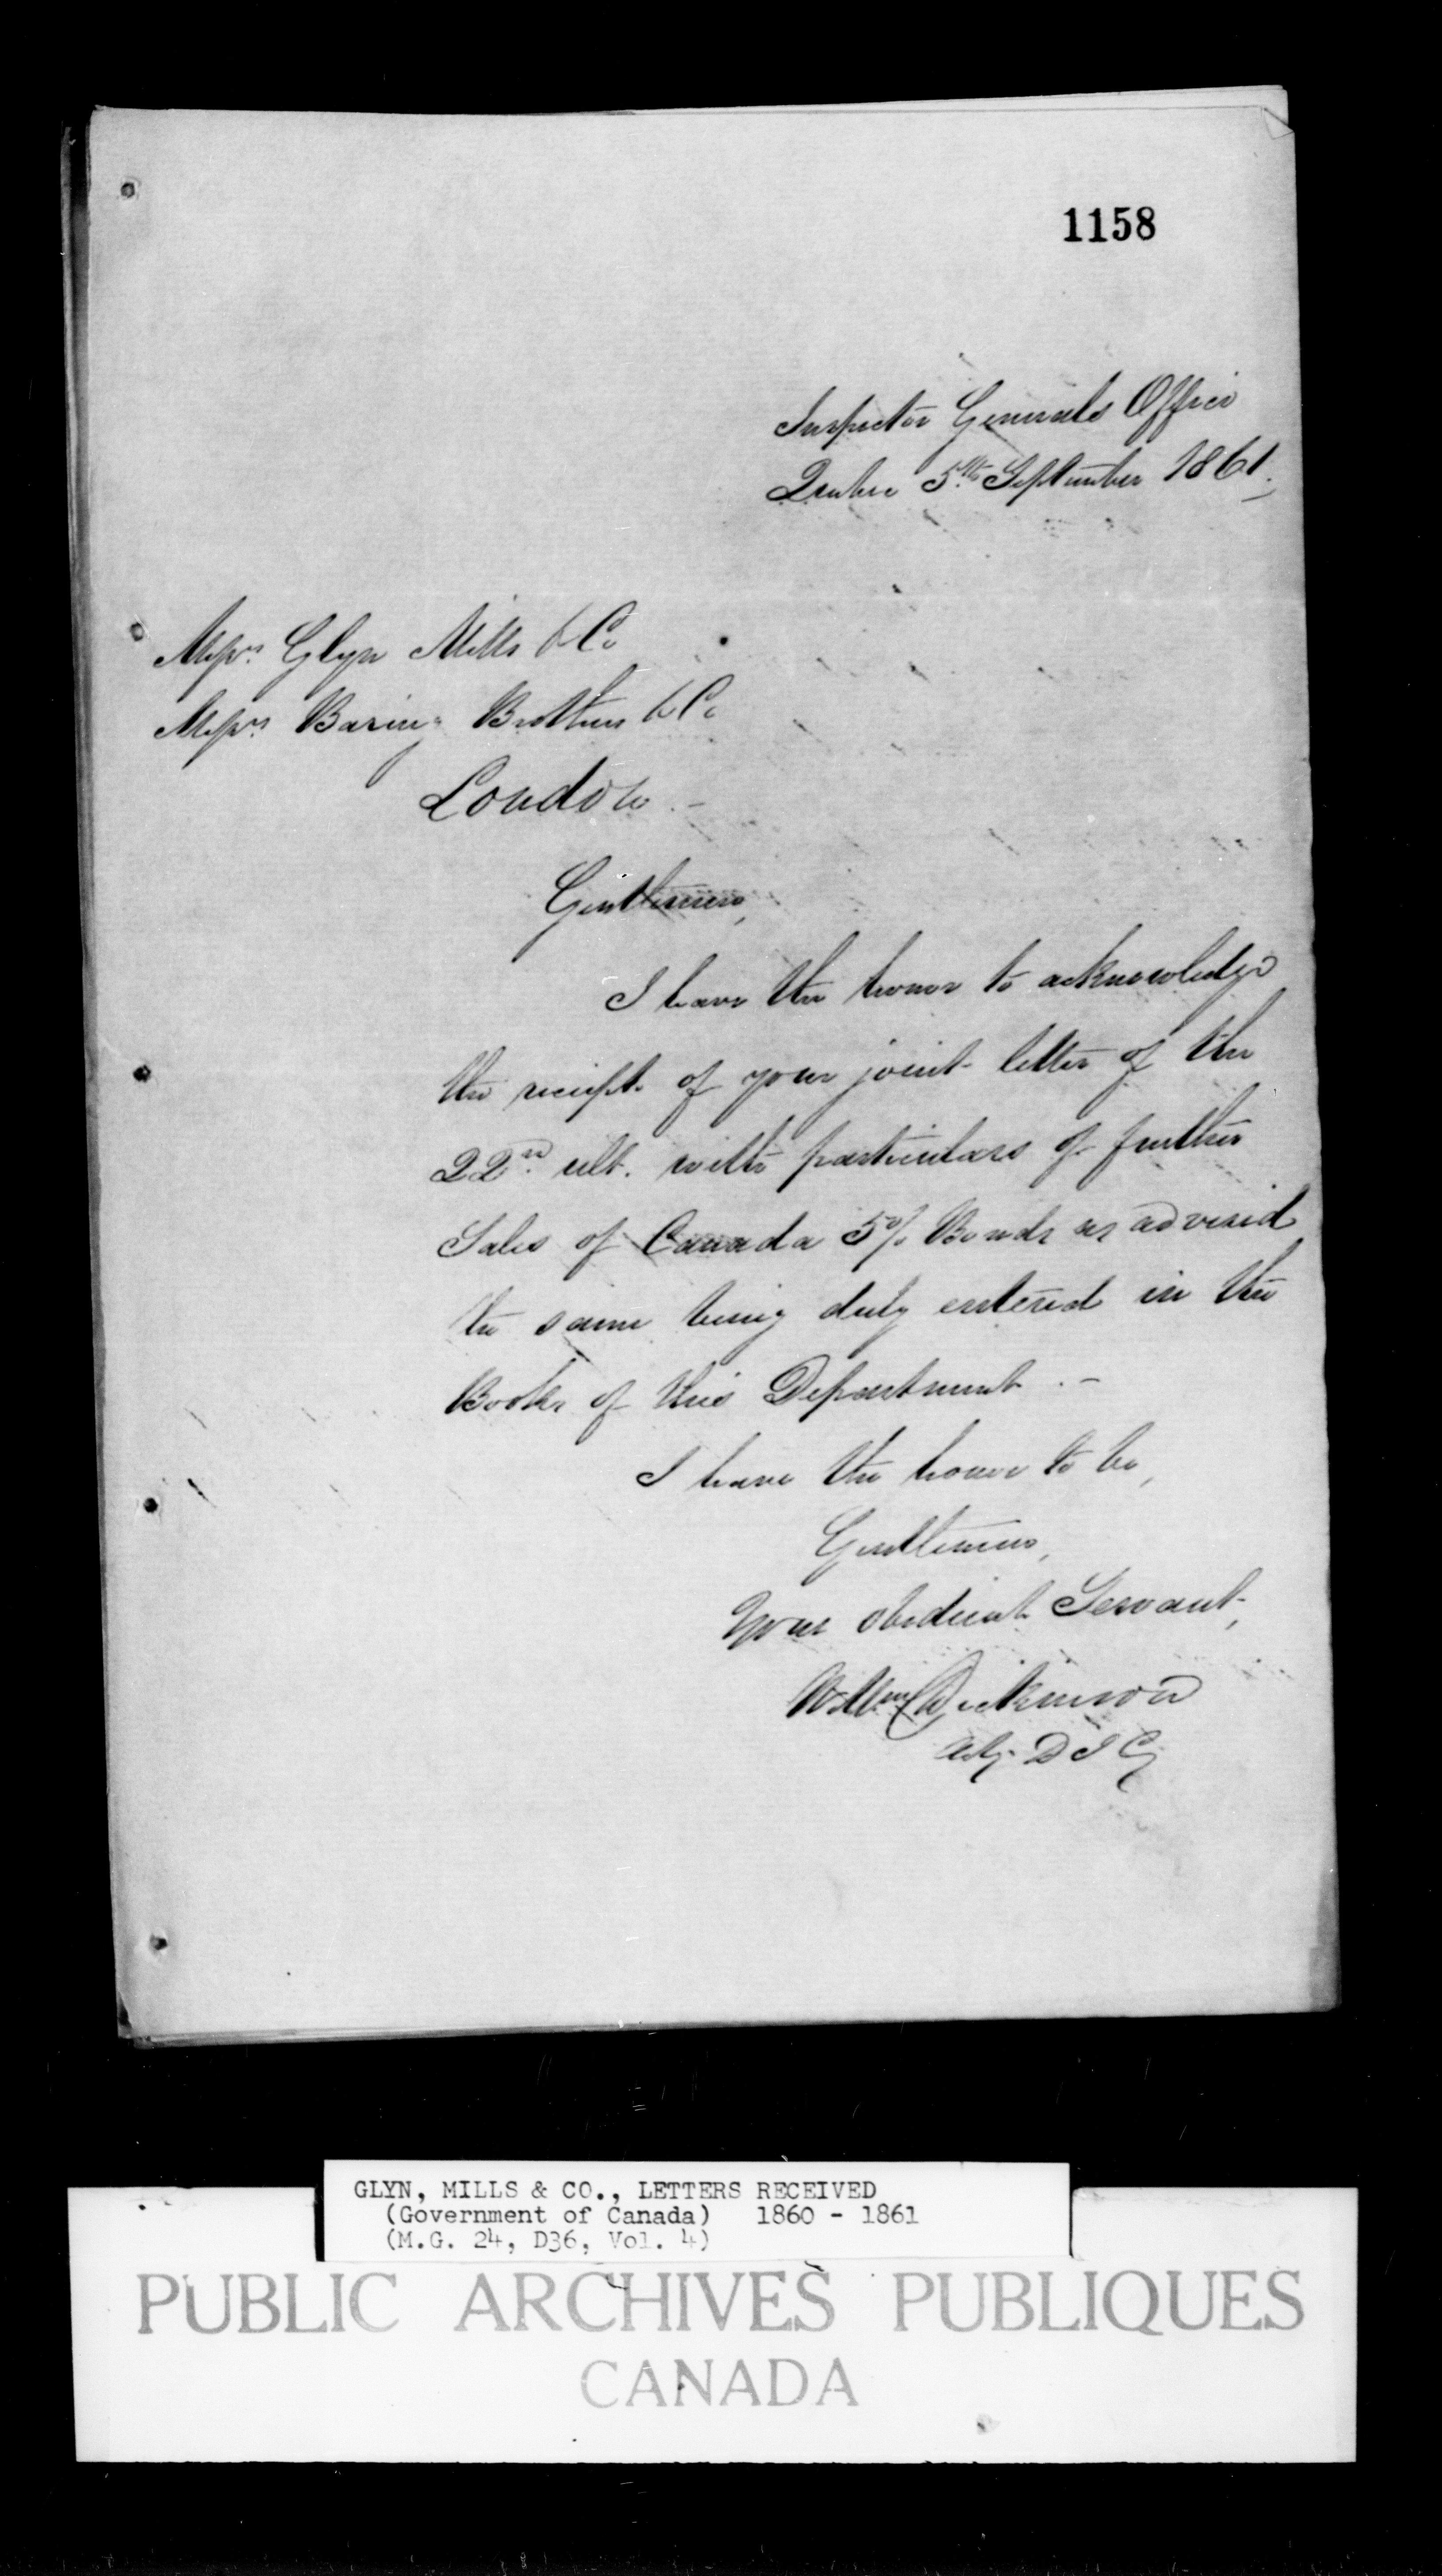 1158
Inspector Generals Office
Quebec 5th September 1861.
Messrs Glyn Mills & Co
Messrs Baring Brothers & Co
London.-
Gentlemen,
I have the honor to acknowledge
the receipt of your joint letter of the
22nd ult. with particulars of further
Sales of Canada 5% Bonds as advised
the same being duly entered in the
Books of this Department.-
I have the honor to be,
Gentlemen,
Your obedient Servant,
Willm Dickinson
Actg D I G
GLYN, MILLS & CO., LETTERS RECEIVED
(Government of Canada) 1860 - 1861
(M.G. 24, D36, Vol. 4)
PUBLIC ARCHIVES PUBLIQUES
CANADA